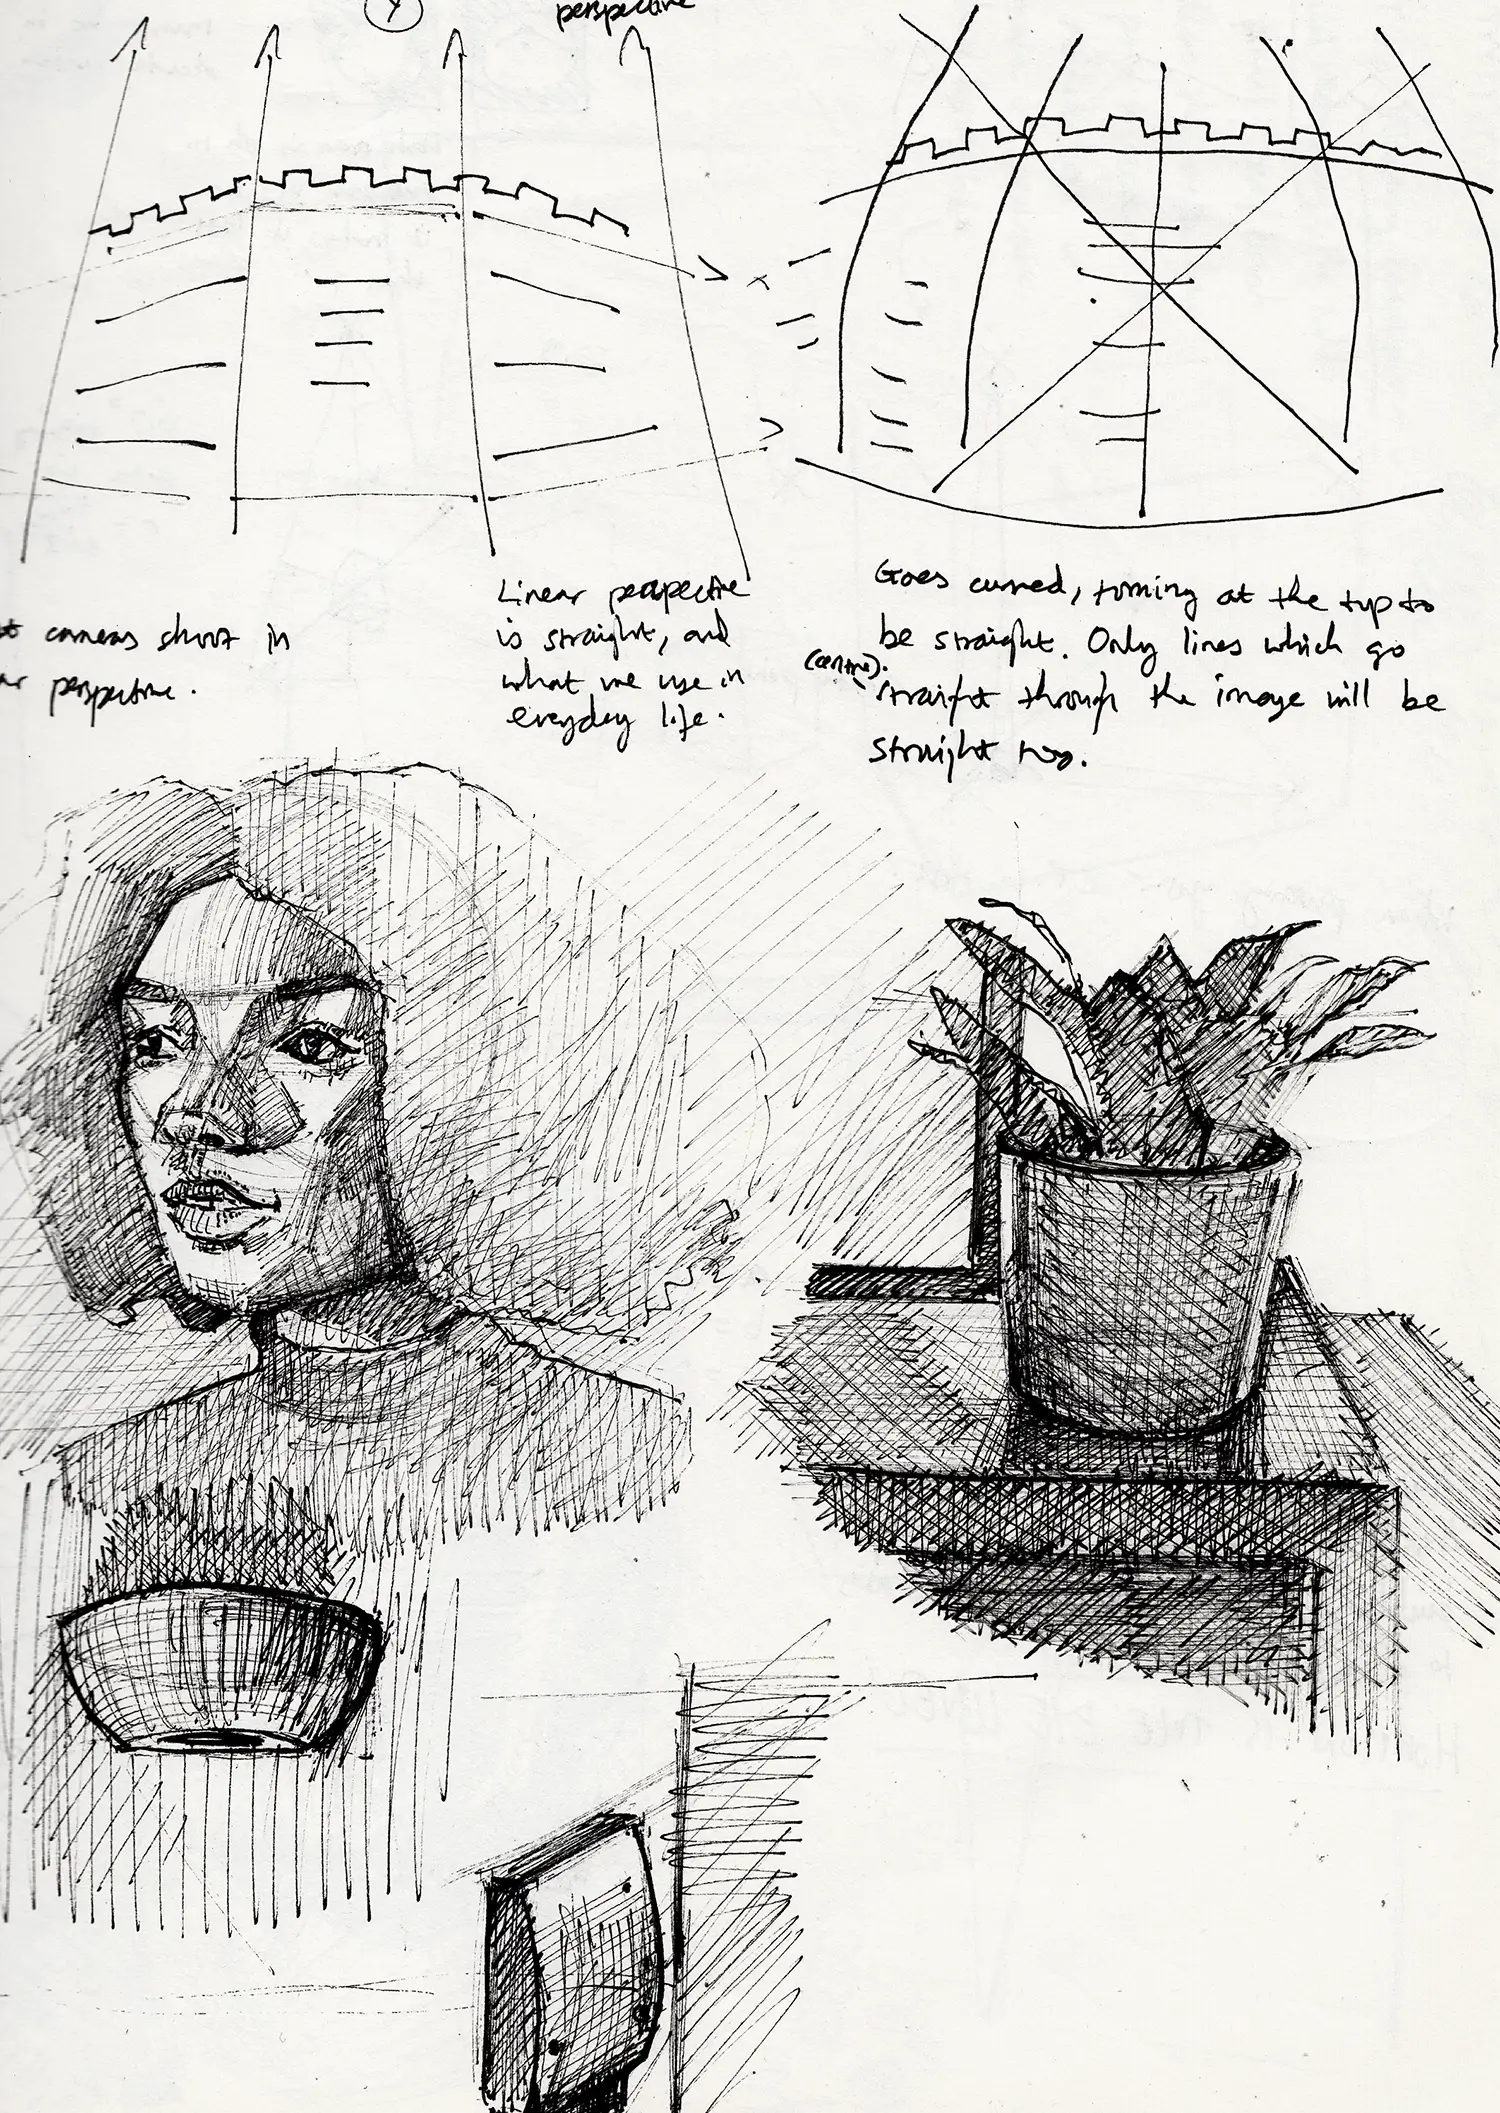 perspective
cameras shoot in
perspective.
Linear perspective
is straight, and
what we use in
everyday life.
Goes curved, turning at the top to
be straight. Only lines which go
(centre).
straight through the image will be
straight too.